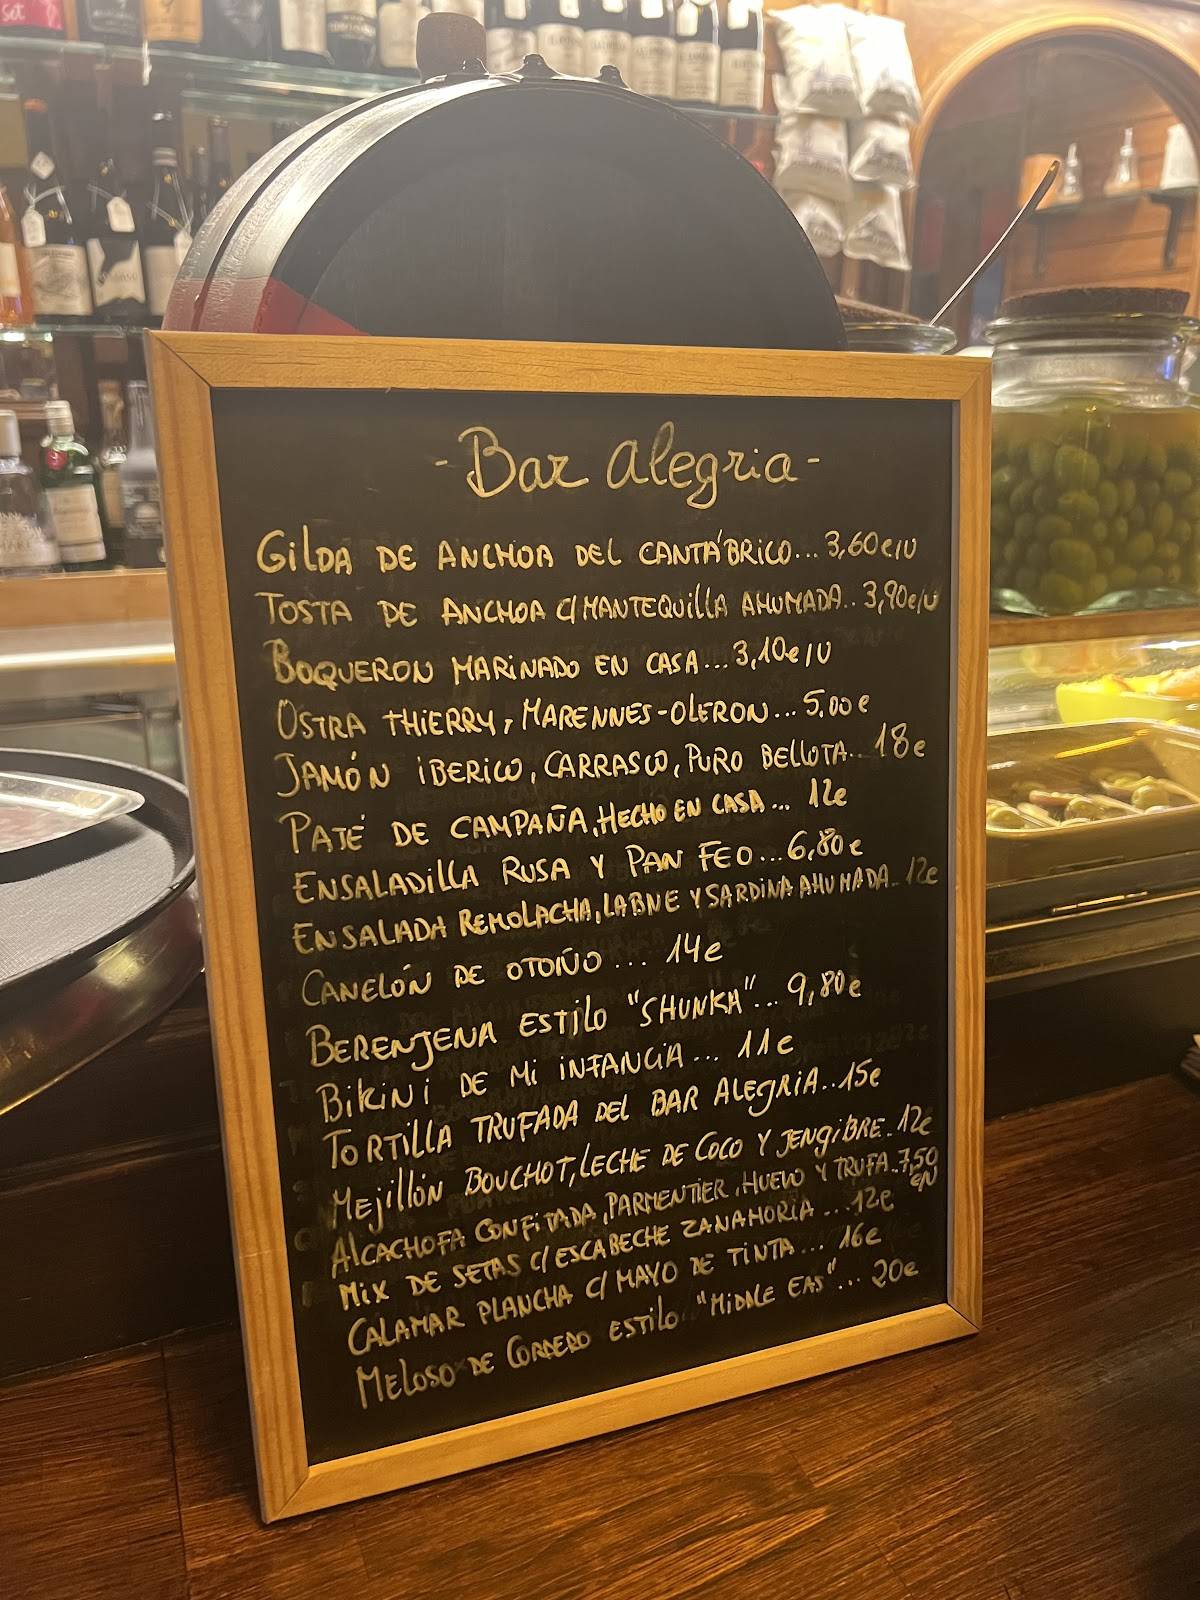 - Bar alegria -
GILDA DE ANCHOA DEL CANTÁBRICO... 3,60€/U
TOSTA DE ANCHOA C/MANTEQUILLA AHUMADA.. 3,90€/U
BOQUERON MARINADO EN CASA... 3,10€/U
OSTRA THIERRY, MARENNES-OLERON... 5,00€
JAMÓN IBERICO, CARRASCO, PURO BELLOTA.. 18€
PATÉ DE CAMPAÑA, HECHO EN CASA... 12€
ENSALADILLA RUSA Y PAN FEO... 6,80€
ENSALADA REMOLACHA, LABNE Y SARDINA AHUMADA.. 12€
CANELÓN DE OTOÑO... 14€
BERENJENA ESTILO "SHUNKA"... 9,80€
BIKINI DE MI INFANCIA... 11€
TORTILLA TRUFADA DEL BAR ALEGRIA.. 15€
MEJILLÓN BOUCHOT, LECHE DE COCO Y JENGIBRE.. 12€
ALCACHOFA CONFITADA, PARMENTIER, HUEVO Y TRUFA.. 7,50 €/U
MIX DE SETAS C/ESCABECHE ZANAHORIA... 12€
CALAMAR PLANCHA C/ MAYO DE TINTA... 16€
MELOSO DE CORDERO ESTILO "MIDDLE EAS"... 20€